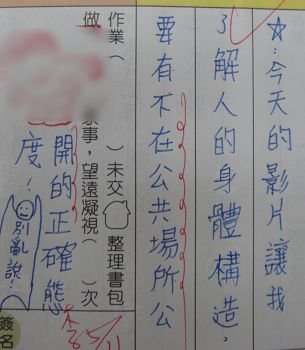 ☆：今天的影片讓我
了解人的身體構造，
要有不在公共場所公
開的正確態
度！
別亂說！
作業（　）未交　整理書包
做　家事，望遠凝視（　）次
簽名